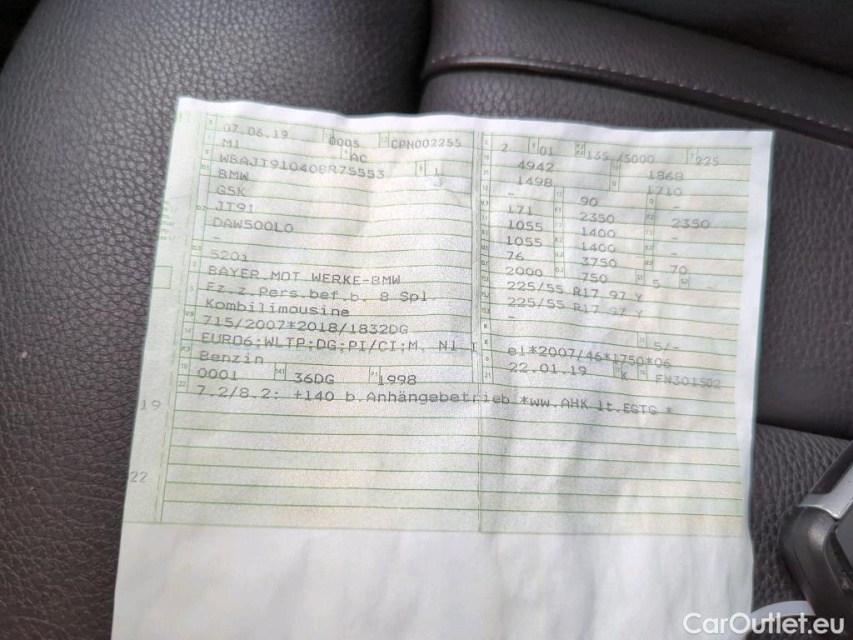 07.06.19 0005 CPN002255
M1 AC
WBAJT91040BR75553 1
BMW
G5K
JT91
DAW500L0
-
520i
BAYER.MOT.WERKE-BMW
Fz.z.Pers.bef.b. 8 Spl.
Kombilimousine
715/2007*2018/1832DG
EURO6;WLTP;DG;PI/CI;M, N1 I
Benzin
0001 36DG 1998
7.2/8.2: +140 b.Anhängebetrieb *ww.AHK lt.EGTG *
2 01 135 /5000 225
4942 1868
1498 1710
- 90 -
171 2350 2350
1055 1400 -
1055 1400 -
76 3750 70
2000 750 5 -
225/55 R17 97 Y
225/55 R17 97 Y
-
5/-
e1*2007/46*1750*06
22.01.19 K FN301502
19
22
CarOutlet.eu